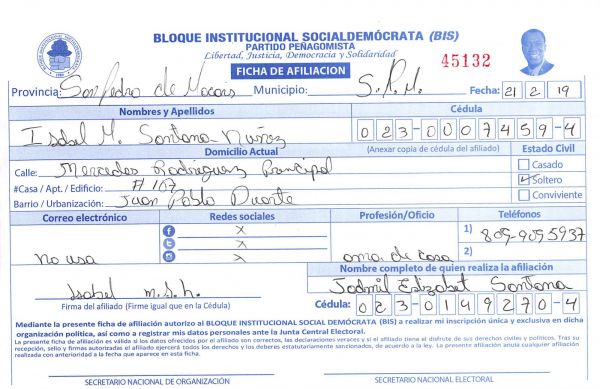 BLOQUE INSTITUCIONAL SOCIALDEMÓCRATA (BIS)
PARTIDO PEÑAGOMISTA
Libertad, Justicia, Democracia y Solidaridad
45132
FICHA DE AFILIACION
Provincia: San Pedro de Macoris Municipio: S.P.M. Fecha: 21 2 19
Nombres y Apellidos Cédula
Isabel M. Santana Nuñez 023-0007459-4
Domicilio Actual (Anexar copia de cédula del afiliado) Estado Civil
Calle: Mercedes Rodriguez Principal Casado
#Casa / Apt. / Edificio: # 107 Soltero
Barrio / Urbanización: Juan Pablo Duarte Conviviente
Correo electrónico Redes sociales Profesión/Oficio Teléfonos
X 1) 809-909 5937
X
no usa X ama de casa 2)
Nombre completo de quien realiza la afiliación
Isabel m.s.n. Jadmil Elizabet Santana
Firma del afiliado (Firme igual que en la Cédula) Cédula: 023-0149270-4
Mediante la presente ficha de afiliación autorizo al BLOQUE INSTITUCIONAL SOCIAL DEMÓCRATA (BIS) a realizar mi inscripción única y exclusiva en dicha
organización política, así como a registrar mis datos personales ante la Junta Central Electoral.
La presente ficha de afiliación es válida si los datos ofrecidos por el afiliado son correctos, las declaraciones veraces y si el afiliado tiene el disfrute de sus derechos civiles y políticos. Tras su
recepción, sello y firmas autorizadas el afiliado ejercerá todos los derechos y los deberes estatutariamente sancionados, de acuerdo a la ley. La presente afiliación anula cualquier afiliación
realizada con anterioridad a la fecha que aparece en esta ficha.
SECRETARIO NACIONAL DE ORGANIZACIÓN SECRETARIO NACIONAL ELECTORAL